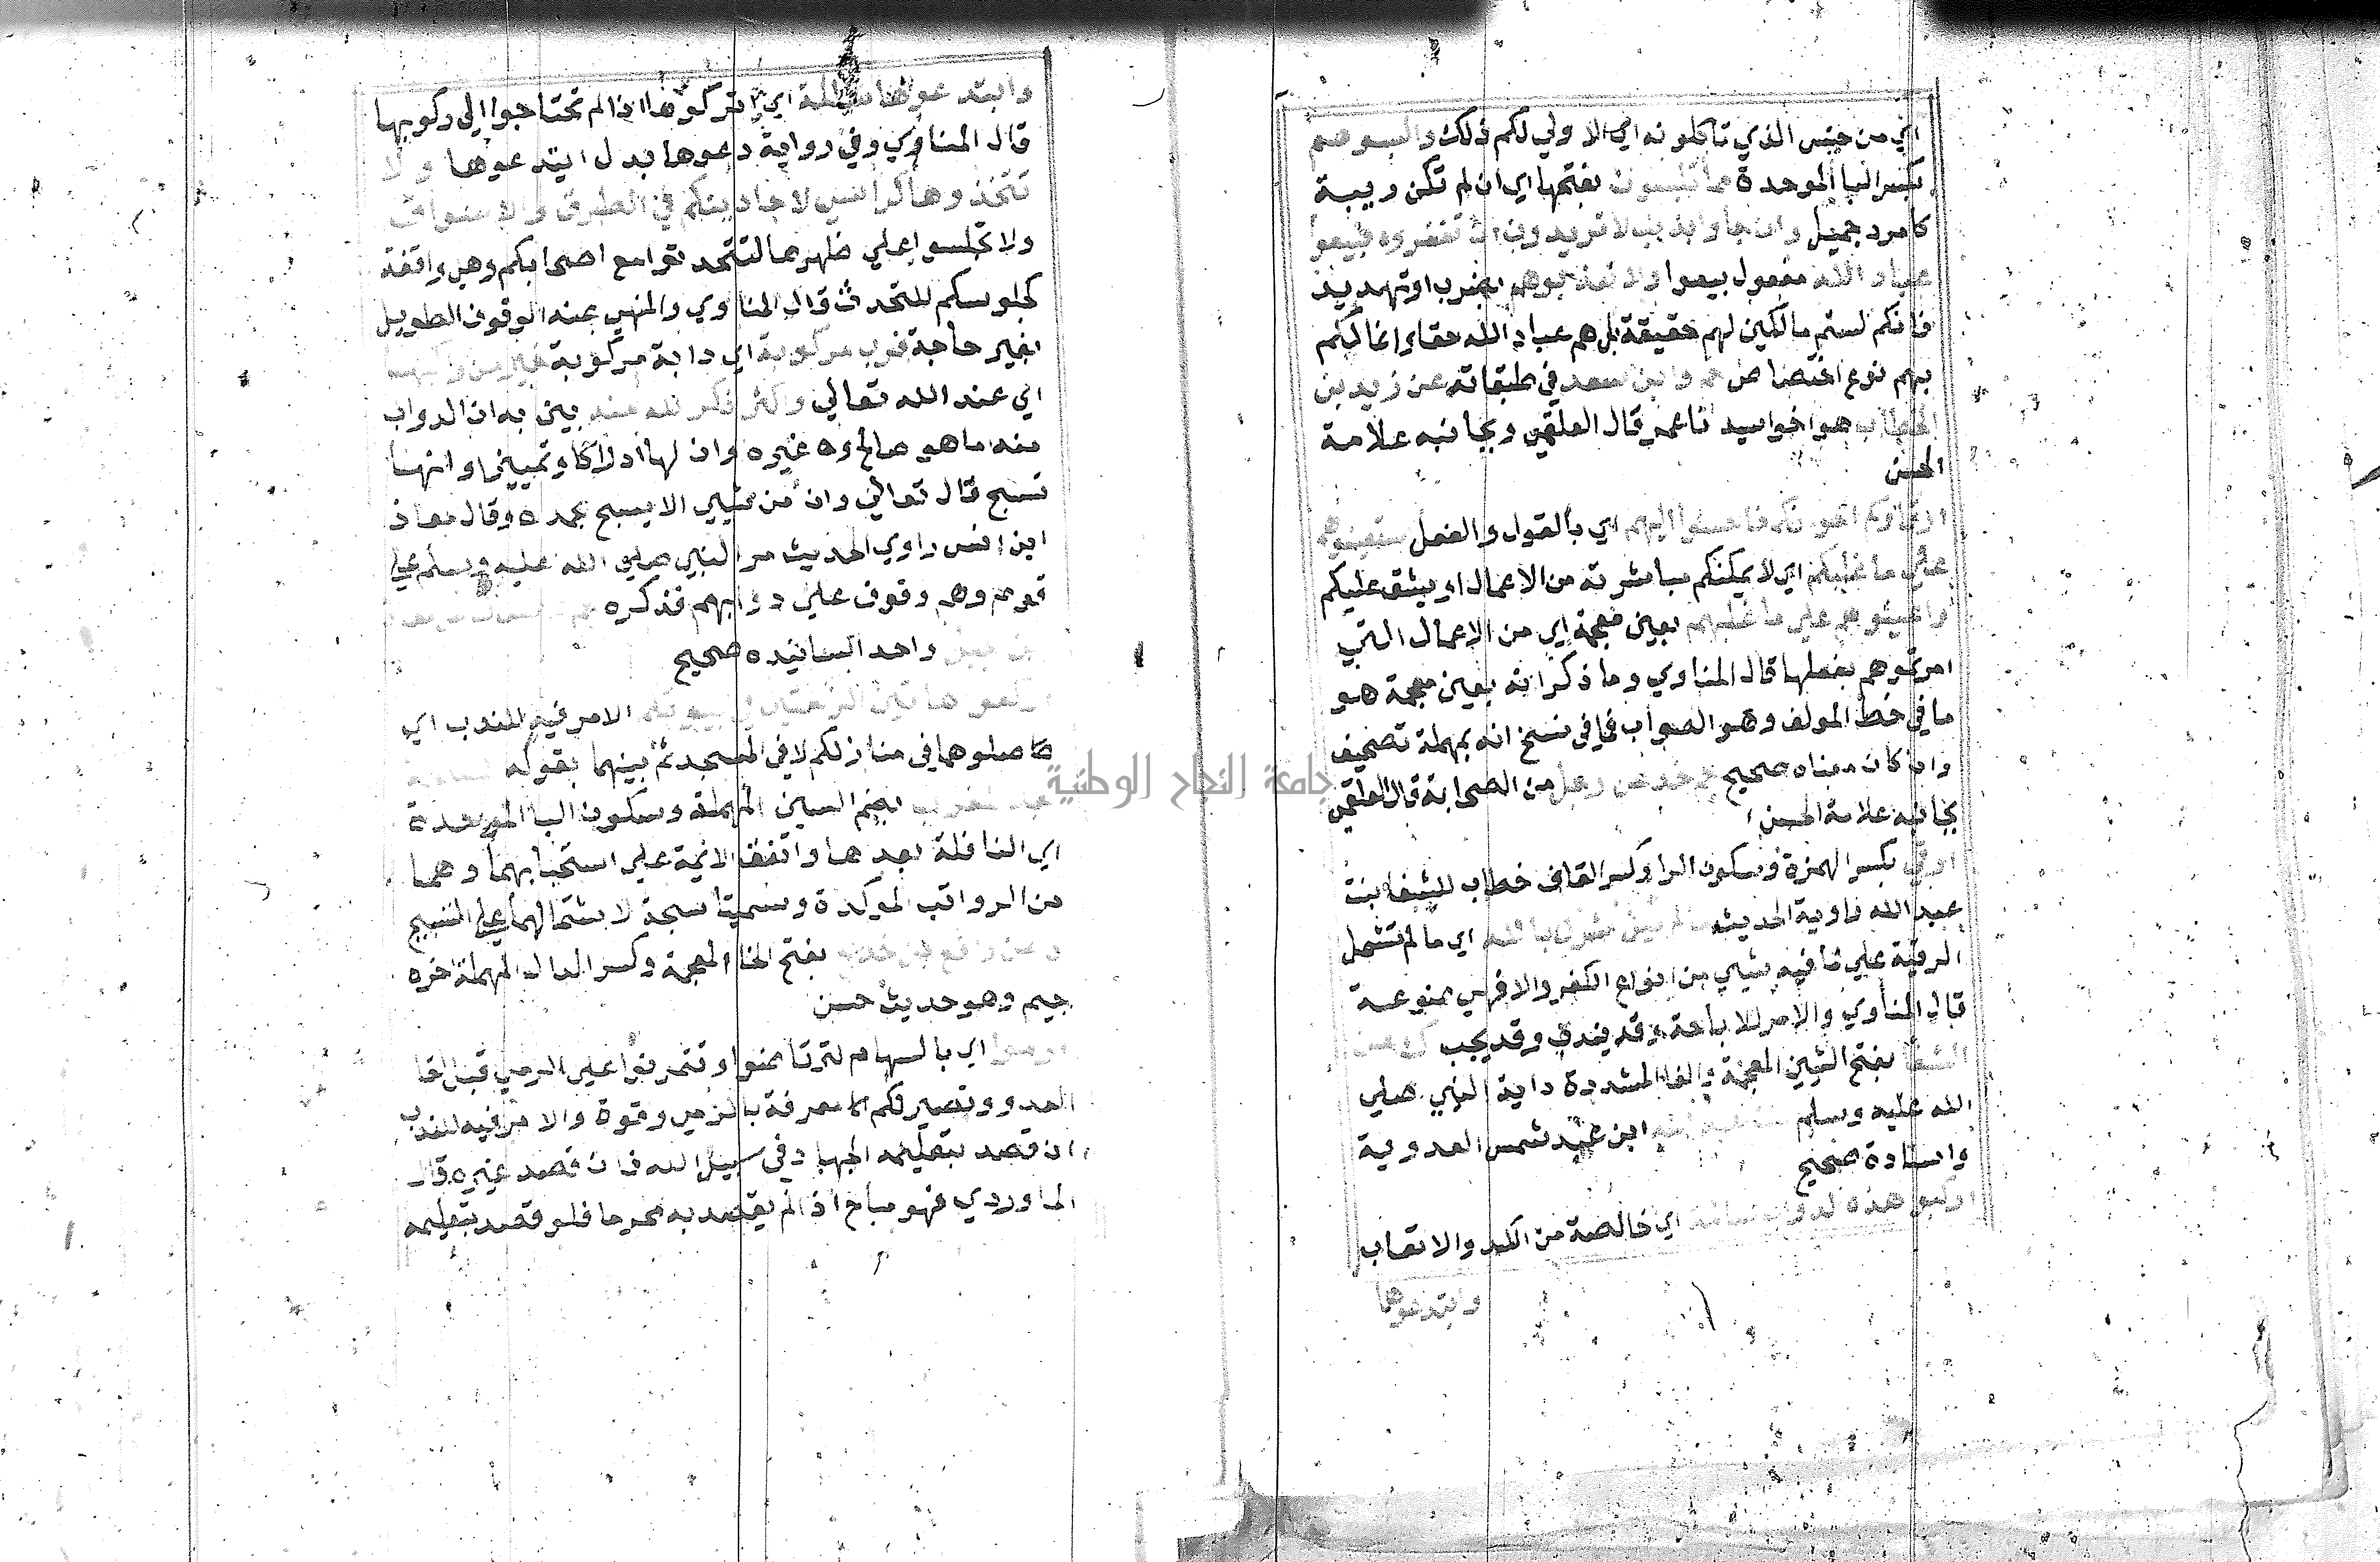 اي من جنس الذي تاكلونه اي الاولي لكم ذلك والبسوهم
بكسر البا الموحدة مما تلبسون بفتحها اي ان لم تكن ريبة
كامرد جميل وان جاوا بذنب لا تريدون ان تغفروه فبيعوا
عباد الله مفعول بيعوا ولا تعذبوهم بضرب او تهديد
فانكم لستم مالكين لهم حقيقة بل هم عباد الله حقا وانما لكم
بهم نوع اختصاص حم وابن سعد في طبقاته عن زيد بن
الخطاب هو اخو سيدنا عمر قال العلقمي وبجانبه علامة
الحسن
ارقاوكم اخوانكم فاحسنوا اليهم اي بالقول والفعل استعينوهم
علي ما غلبكم اي لا يمكنكم مباشرته من الاعمال او يشق عليكم
واعينوهم علي ما غلبهم بعين معجمة اي من الاعمال التي
امرتموهم بفعلها قال المناوي وما ذكر انه بعين معجمة هو
ما في خط المولف وهو الصواب فما في نسخ انه بمهملة تصحيف
وان كان معناه صحيح حم خد عن رجل من الصحابة قال العلقمي
بجانبه علامة الحسن
ارقي بكسر الهمزة وسكون الرا وكسر القاف خطاب للشفا بنت
عبد الله راوية الحديث ما لم يكن شرك بالله اي ما لم تشتمل
الرقية علي ما فيه شيي من انواع الكفر والا فهي ممنوعة
قال المناوي والامر للاباحة وقد يندب وقد يجب ك عن
الشفا بفتح الشين المعجمة والفا المشددة داية النبي صلي
الله عليه وسلم بنت عبد الله ابن عبد شمس العدوية
واسناده صحيح
اركبوا هذه الدواب سالمة اي خالصة من الكد والاتعاب
وابتدعوها
وابتدعوها سالمة اي اتركوها اذا لم تحتاجوا الي ركوبها
قال المناوي وفي رواية دعوها بدل ايتدعوها ولا
تتخذوها كراسي لاحاديثكم في الطرق والاسواق
ولا تجلسوا علي ظهرها لتتحدثوا مع اصحابكم وهي واقفة
كجلوسكم للتحدث قال المناوي والمنهي عنه الوقوف الطويل
بغير حاجة فرب مركوبة اي دابة مركوبة خير من راكبها
اي عند الله تعالي واكثر ذكر لله منه بين به ان الدواب
منه ما هو صالح وه غيره وان لها ادراكا وتمييزا وانها
تسبح قال تعالي وان من شيي الا يسبح بحمده وقال معاذ
ابن انس راوي الحديث مر النبي صلي الله عليه وسلم علي
قوم وهم وقوف علي دوابهم فذكره
واحد اسانيده صحيح
اركعوا هاتين الركعتين في بيوتكم الامر فيه للندب اي
صلوهما في منازلكم لا في المسجد ثم بينهما بقوله السبحة
بعد المغرب بضم السين المهملة وسكون البا الموحدة
اي النافلة بعدها واتفق الائمة علي استحبابهما وهما
من الرواتب الموكدة وسميتا سبحة لاشتمالهما علي التسبيح
ه عن رافع بن خديج بفتح الخا المعجمة وكسر الدال المهملة اخره
جيم وهو حديث حسن
ارموا اي بالسهام لترتاضوا وتتمرنوا علي الرمي قبل لقا
العدو وتصير لكم المعرفة بالرمي وقوة والامر فيه للندب
ان قصد بتعليمه الجهاد في سبيل الله فان قصد غيره قال
الماوردي فهو مباح اذا لم يقصد به محرما فلو قصد بتعليمه
جامعة النجاح الوطنية